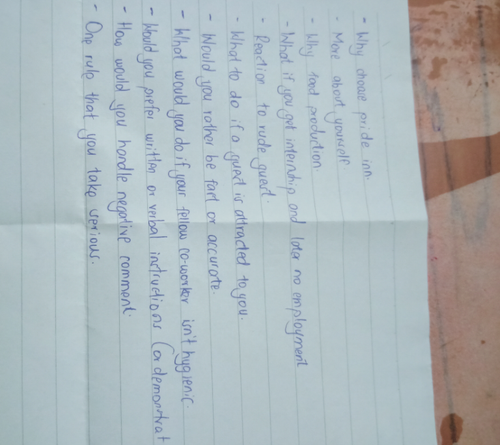 - Why choose pride inn.
- More about yourself
- Why food production
- What if you get internship and later no employment
- Reaction to rude guest
- What to do if a guest is attracted to you.
- Would you rather be fast or accurate.
- What would you do if your fellow co-worker isn't hygienic
- Would you prefer written or verbal instructions (or demonstrat
- How would you handle negative comment.
- One rule that you take serious.